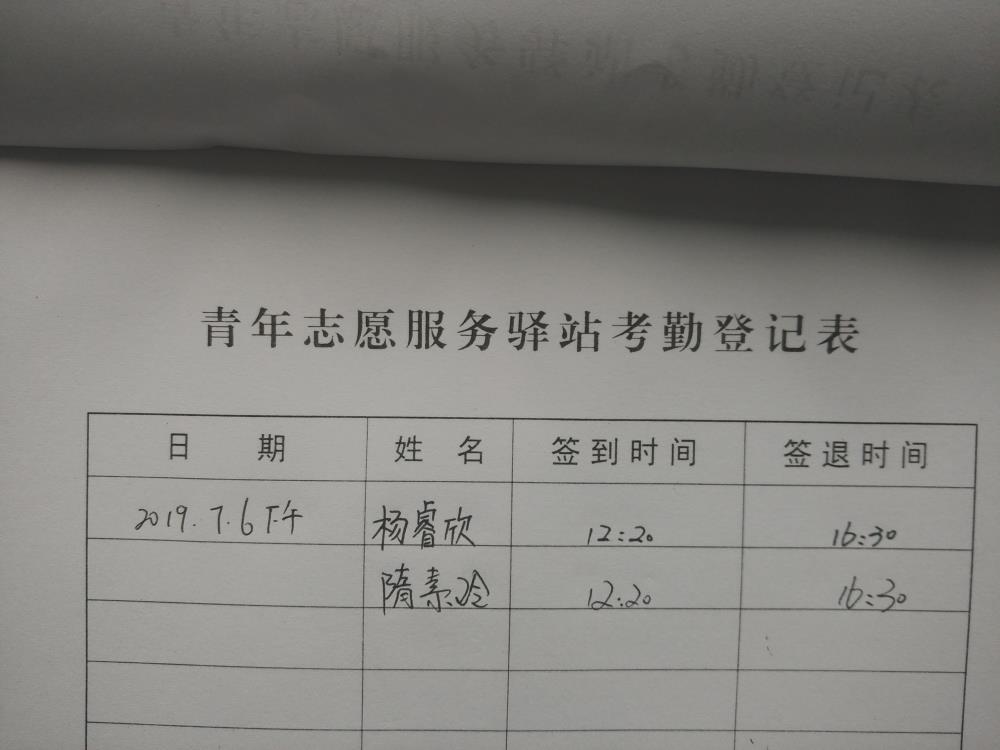 青年志愿服务驿站考勤登记表
日 期 姓 名 签到时间 签退时间
2019.7.6下午 杨睿欣 12:20 16:30
隋素冷 12:20 16:30